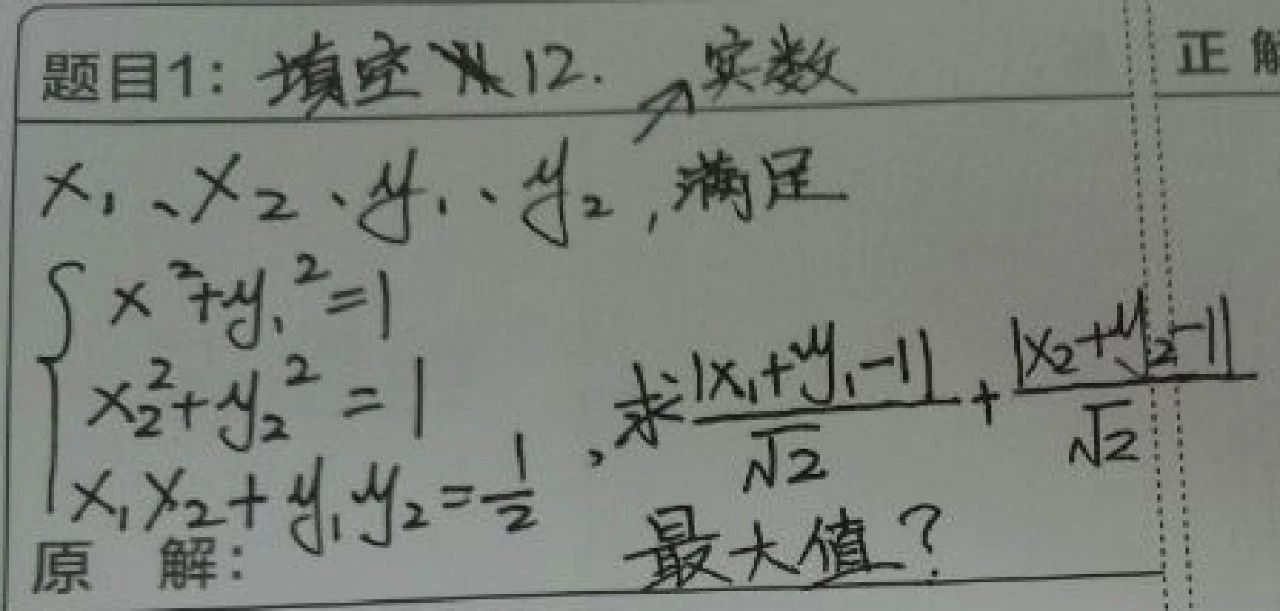 题目1: 填空 12. 实数
正 解
x₁、x₂、y₁、y₂, 满足
x²+y₁²=1
x₂²+y₂²=1
x₁x₂+y₁y₂=1/2, 求:|x₁+y₁-1|/√2+|x₂+y₂-1|/√2
最大值?
原 解: